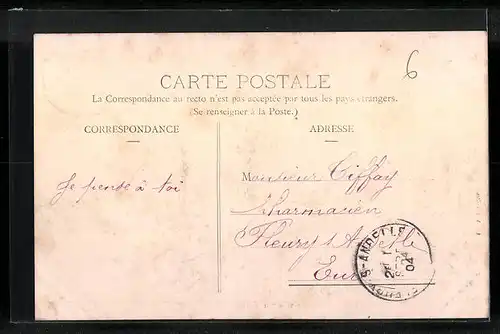 6
CARTE POSTALE
La Correspondance au recto n'est pas acceptée par tous les pays étrangers.
(Se renseigner à la Poste.)
CORRESPONDANCE
ADRESSE
Je pense à toi
Monsieur Tiffay
Pharmacien
Fleury s/Andelle
Eure
S-ANDELLE
04